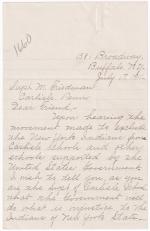 1660
131. Broadway,
Buffalo N.Y.
July 17
Supt. M. Friedman
Carlisle Penn
Dear Friend,
Upon hearing the
movement made to exclude
the New York Indians from
Carlisle School and other
schools supported by the
United States Government
I wish to tell you, as you
are the Supt of Carlisle School
what the Government will
do what is injustice to the
Indians of New York State